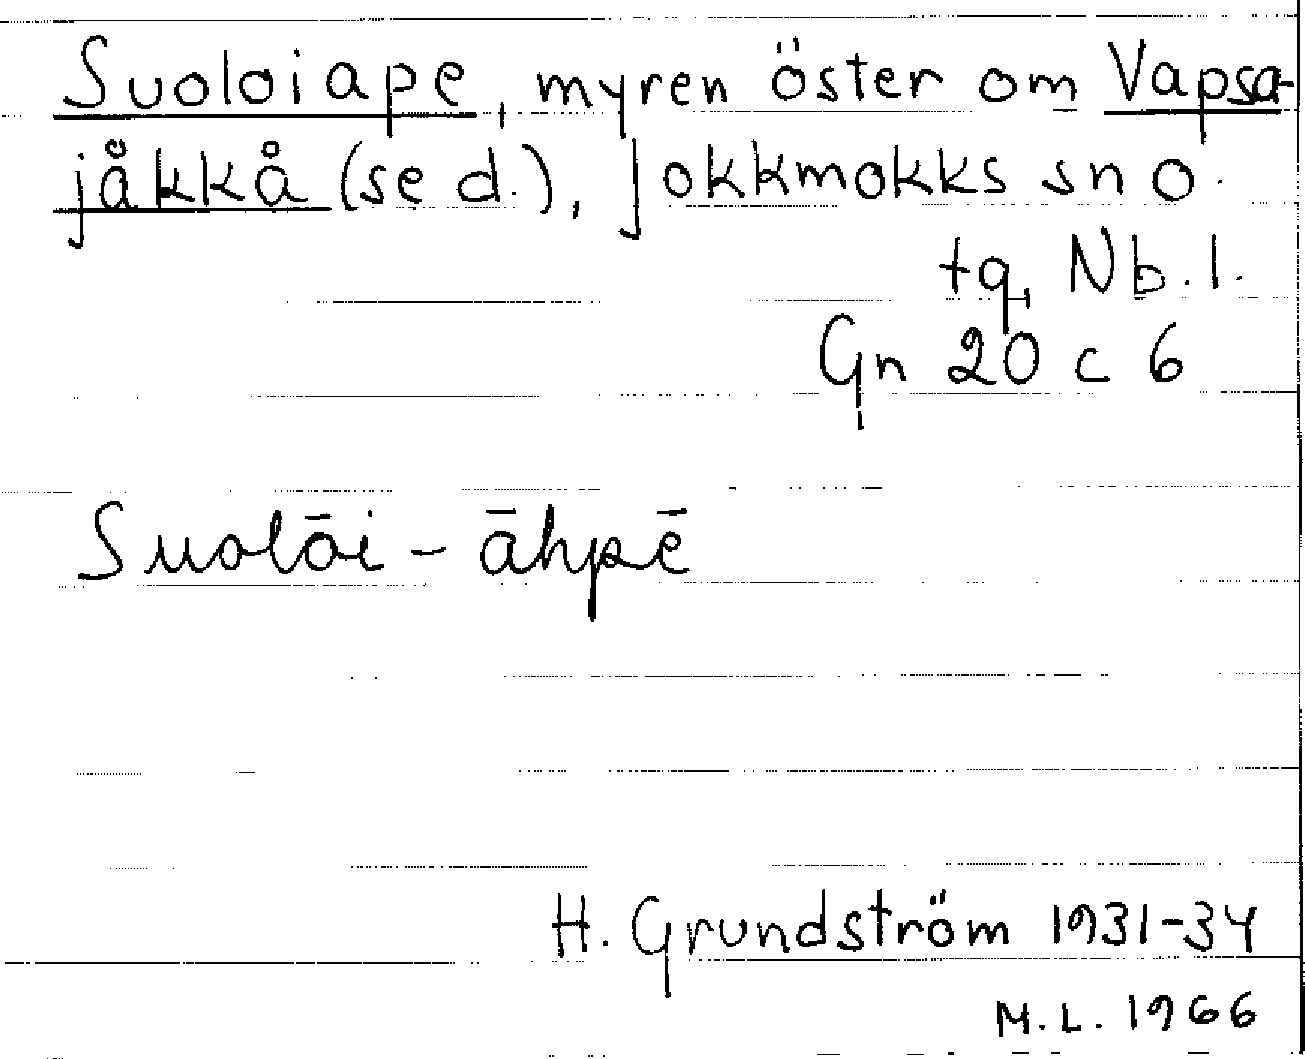 Suoloiape, myren öster om Vapsa-
jåkkå (se d.), Jokkmokks sn o.
tg, Nb. l.
Gn 20 c 6
Suolāi - āhpē
H. Grundström 1931-34
M. L. 1966